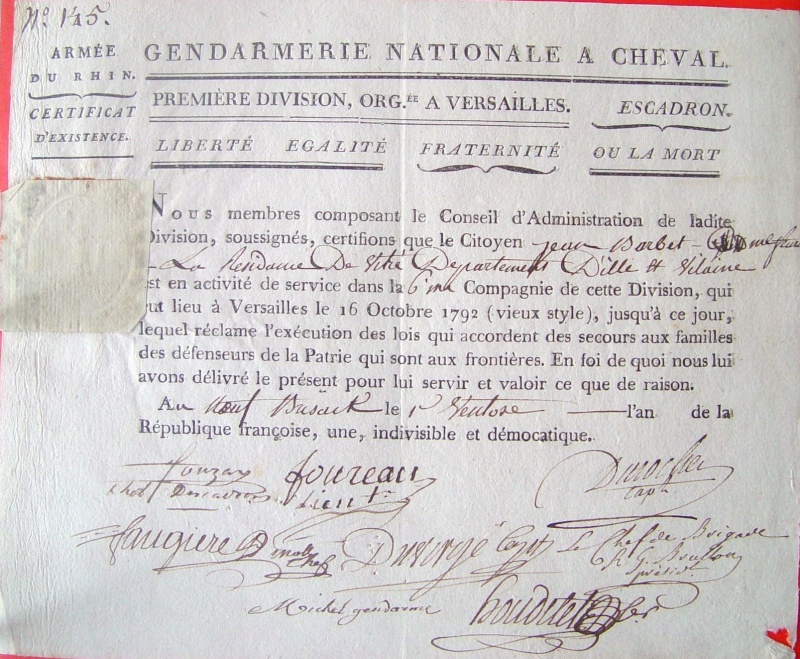 N.º 145.
ARMÉE
DU RHIN.
CERTIFICAT
D'EXISTENCE.
GENDARMERIE NATIONALE A CHEVAL.
PREMIÈRE DIVISION, ORG.ÉE A VERSAILLES.
ESCADRON.
LIBERTÉ EGALITÉ FRATERNITÉ OU LA MORT
Nous membres composant le Conseil d'Administration de ladite
Division, soussignés, certifions que le Citoyen jean Barbet
La Rendame De Vitré Departement D'ille et Vilaine
est en activité de service dans la 6me Compagnie de cette Division, qui
eut lieu à Versailles le 16 Octobre 1792 (vieux style), jusqu'à ce jour,
lequel réclame l'exécution des lois qui accordent des secours aux familles
des défenseurs de la Patrie qui sont aux frontières. En foi de quoi nous lui
avons délivré le présent pour lui servir et valoir ce que de raison.
Au neuf Brisack le 1r Ventose l'an de la
République françoise, une, indivisible et démocatique.
foureau
Lieut
Durocher
Cap
faugiere
Duvergé Capt
Le Chef de Brigade
Michel gendarme
houdetet